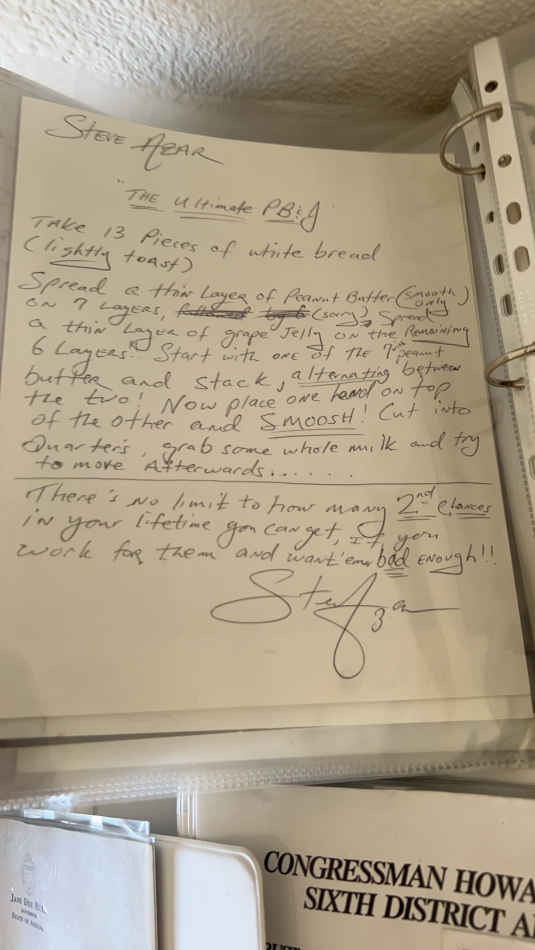 STEVE AZAR
"THE Ultimate PB&J"
TAKE 13 Pieces of white bread
(lightly toast)
Spread a thin Layer of Peanut Butter (smooth only)
ON 7 LAYERS, (sorry) Spread
a thin Layer of grape Jelly ON the Remaining
6 Layers! Start with one of the 7 peanut
butter and stack, alternating between
the two! Now place one hand on top
of the other and SMOOSH! Cut into
Quarters, grab some whole milk and try
to move Afterwards......
There's no limit to how many 2nd chances
in your lifetime you can get, If, you
work for them and want 'em bad ENOUGH!!
Steve Azar
JANE DEE HULL
GOVERNOR
STATE OF ARIZONA
CONGRESSMAN HOWA
SIXTH DISTRICT A